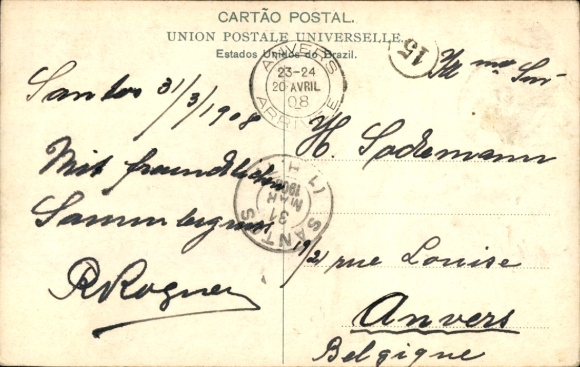 CARTÃO POSTAL.
UNION POSTALE UNIVERSELLE.
Estados Unidos do Brazil.
ANVERS
23-24
20 AVRIL
08
ARRIVEE
15
Santos 31/3/1908
Mit freundlichem
Sammlergruss
R Rogner
SANTOS
31
MAR
1908
Ill ma Snr
H. Sodemann
19/21 rue Louise
Anvers
Belgique